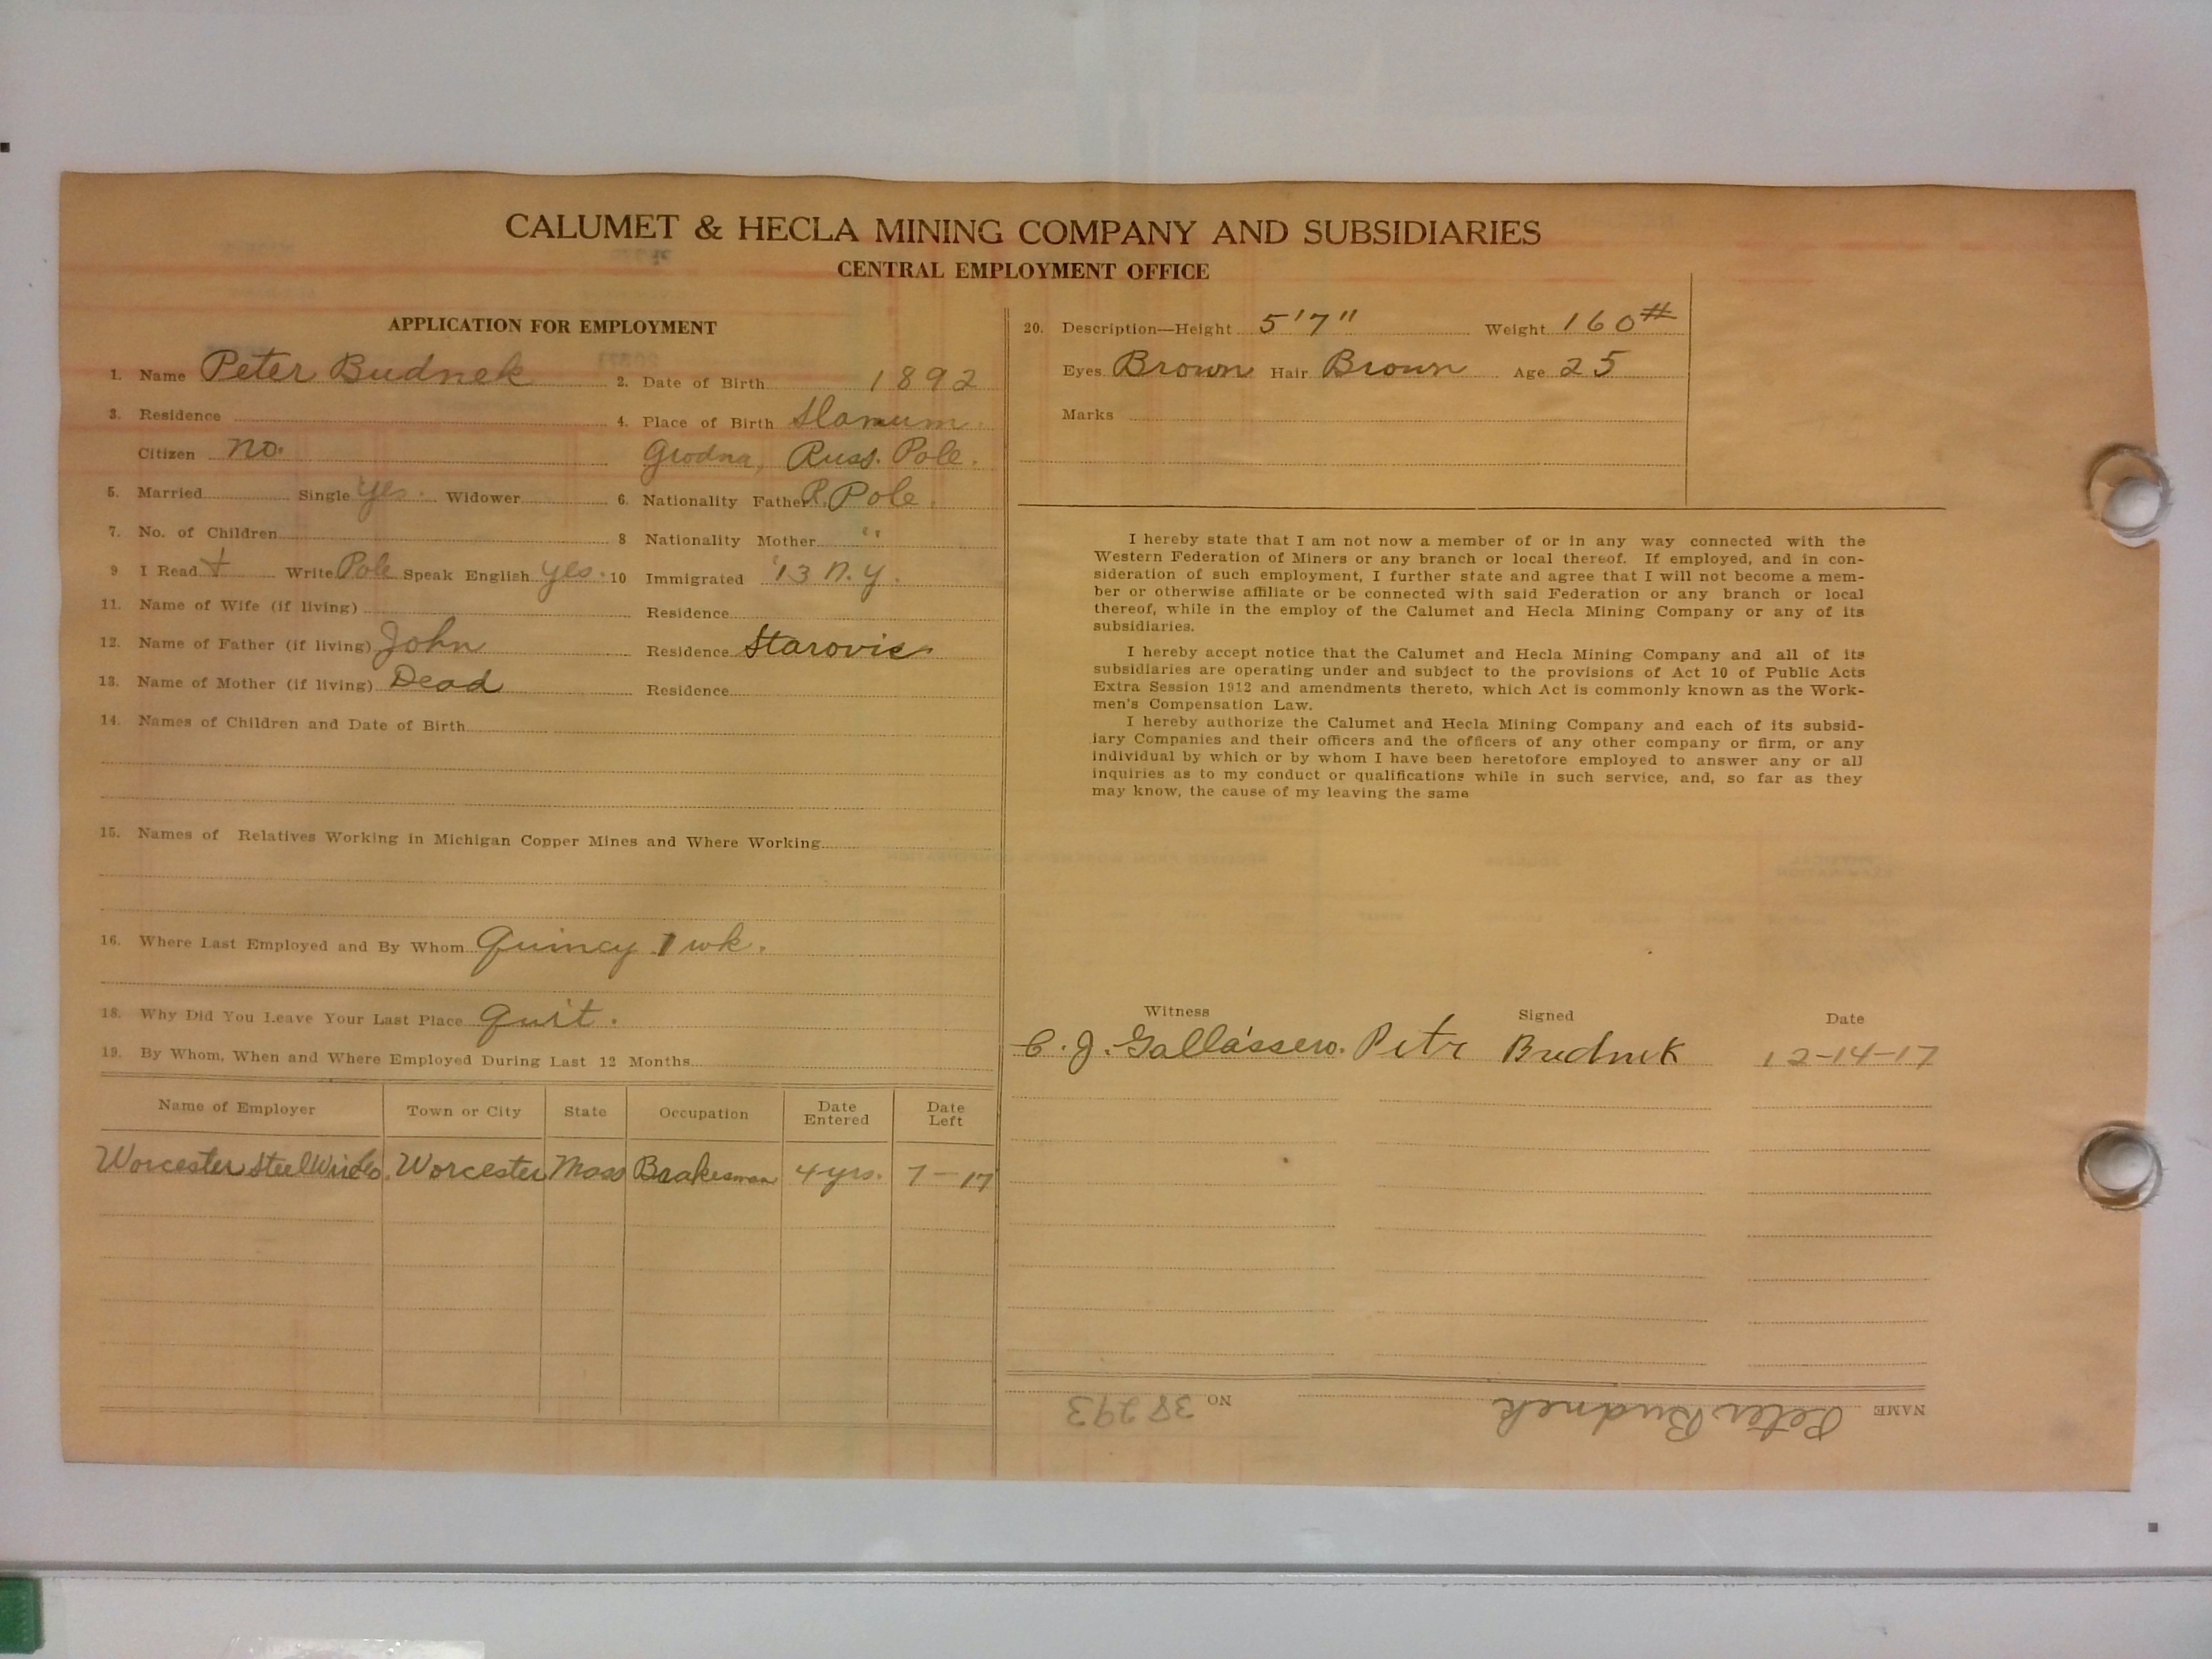 CALUMET & HECLA MINING COMPANY AND SUBSIDIARIES
CENTRAL EMPLOYMENT OFFICE
APPLICATION FOR EMPLOYMENT
1. Name Peter Budnek 2. Date of Birth 1892
3. Residence 4. Place of Birth Slonum
Citizen no. Grodna, Russ. Pole.
5. Married Single Yes. Widower 6. Nationality Father R. Pole.
7. No. of Children 8 Nationality Mother "
9 I Read + Write Pole Speak English yes. 10 Immigrated '13 N.Y.
11. Name of Wife (if living) Residence
12. Name of Father (if living) John Residence Starovic
13. Name of Mother (if living) Dead Residence
14. Names of Children and Date of Birth
15. Names of Relatives Working in Michigan Copper Mines and Where Working
16. Where Last Employed and By Whom Quincy 1 wk.
18. Why Did You Leave Your Last Place Quit.
19. By Whom, When and Where Employed During Last 12 Months
Name of Employer Town or City State Occupation Date Entered Date Left
Worcester Steel Wire Co. Worcester Mass Brakesman 4 yrs. 7-17
20. Description—Height 5'7" Weight 160#
Eyes Brown Hair Brown Age 25
Marks
I hereby state that I am not now a member of or in any way connected with the
Western Federation of Miners or any branch or local thereof. If employed, and in con-
sideration of such employment, I further state and agree that I will not become a mem-
ber or otherwise affiliate or be connected with said Federation or any branch or local
thereof, while in the employ of the Calumet and Hecla Mining Company or any of its
subsidiaries.
I hereby accept notice that the Calumet and Hecla Mining Company and all of its
subsidiaries are operating under and subject to the provisions of Act 10 of Public Acts
Extra Session 1912 and amendments thereto, which Act is commonly known as the Work-
men's Compensation Law.
I hereby authorize the Calumet and Hecla Mining Company and each of its subsid-
iary Companies and their officers and the officers of any other company or firm, or any
individual by which or by whom I have been heretofore employed to answer any or all
inquiries as to my conduct or qualifications while in such service, and, so far as they
may know, the cause of my leaving the same
Witness Signed Date
C. J. Gallássero. Petr Budnik 12-14-17
NAME Peter Budnek NO 38293